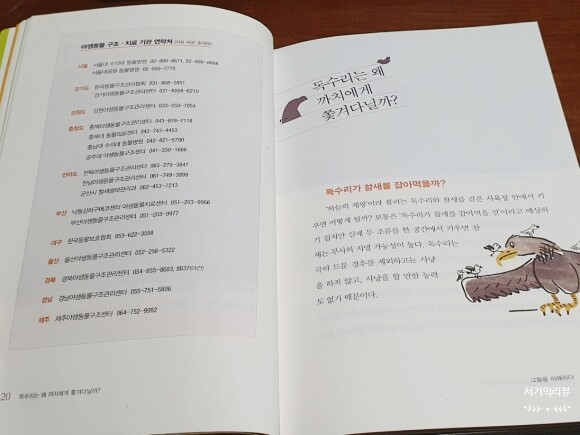 야생동물 구조 · 치료 기관 연락처
서울 서울대 수의대 동물병원 02-880-8671, 02-880-8666
서울대공원 동물병원 02-500-7770
경기도 한국동물구조관리협회 031-868-2851
경기야생동물구조관리센터 031-8008-6210
강원도 강원야생동물구조센터 033-250-7054
충청도 충북야생동물구조센터 043-878-7118
충북대 동물의료센터 043-743-4453
충남대 수의대 동물병원 042-821-6790
공주대 야생동물구조센터 041-330-1666
전라도 전북야생동물구조관리센터 063-270-3841
전남야생동물구조관리센터 061-749-3898
군산시 철새생태관리과 063-453-7213
부산 낙동강하구에코센터 야생동물치료센터 051-203-9966
부산야생동물구조관리센터 051-203-9977
대구 한국동물보호협회 053-622-3598
울산 울산야생동물구조관리센터 052-256-5322
경북 경북야생동물구조관리센터 054-855-8683, 8637(야간)
경남 경남야생동물구조관리센터 055-751-5896
제주 제주야생동물구조센터 064-752-9982
20 독수리는 왜 까치에게 쫓겨다닐까?
독수리는 왜
까치에게
쫓겨다닐까?
독수리가 참새를 잡아먹을까?
'하늘의 제왕'이라 불리는 독수리와 참새를 같은 사육장 안에서 키
우면 어떻게 될까? 보통은 '독수리가 참새를 잡아먹을 것'이라고 예상하
기 쉽지만 실제 두 조류를 한 공간에서 키우면 참
새는 무사히 지낼 가능성이 높다. 독수리는
극히 드문 경우를 제외하고는 사냥
을 하지 않고, 사냥을 할 만한 능력
도 없기 때문이다.
그들을 이해하다
서기의리뷰